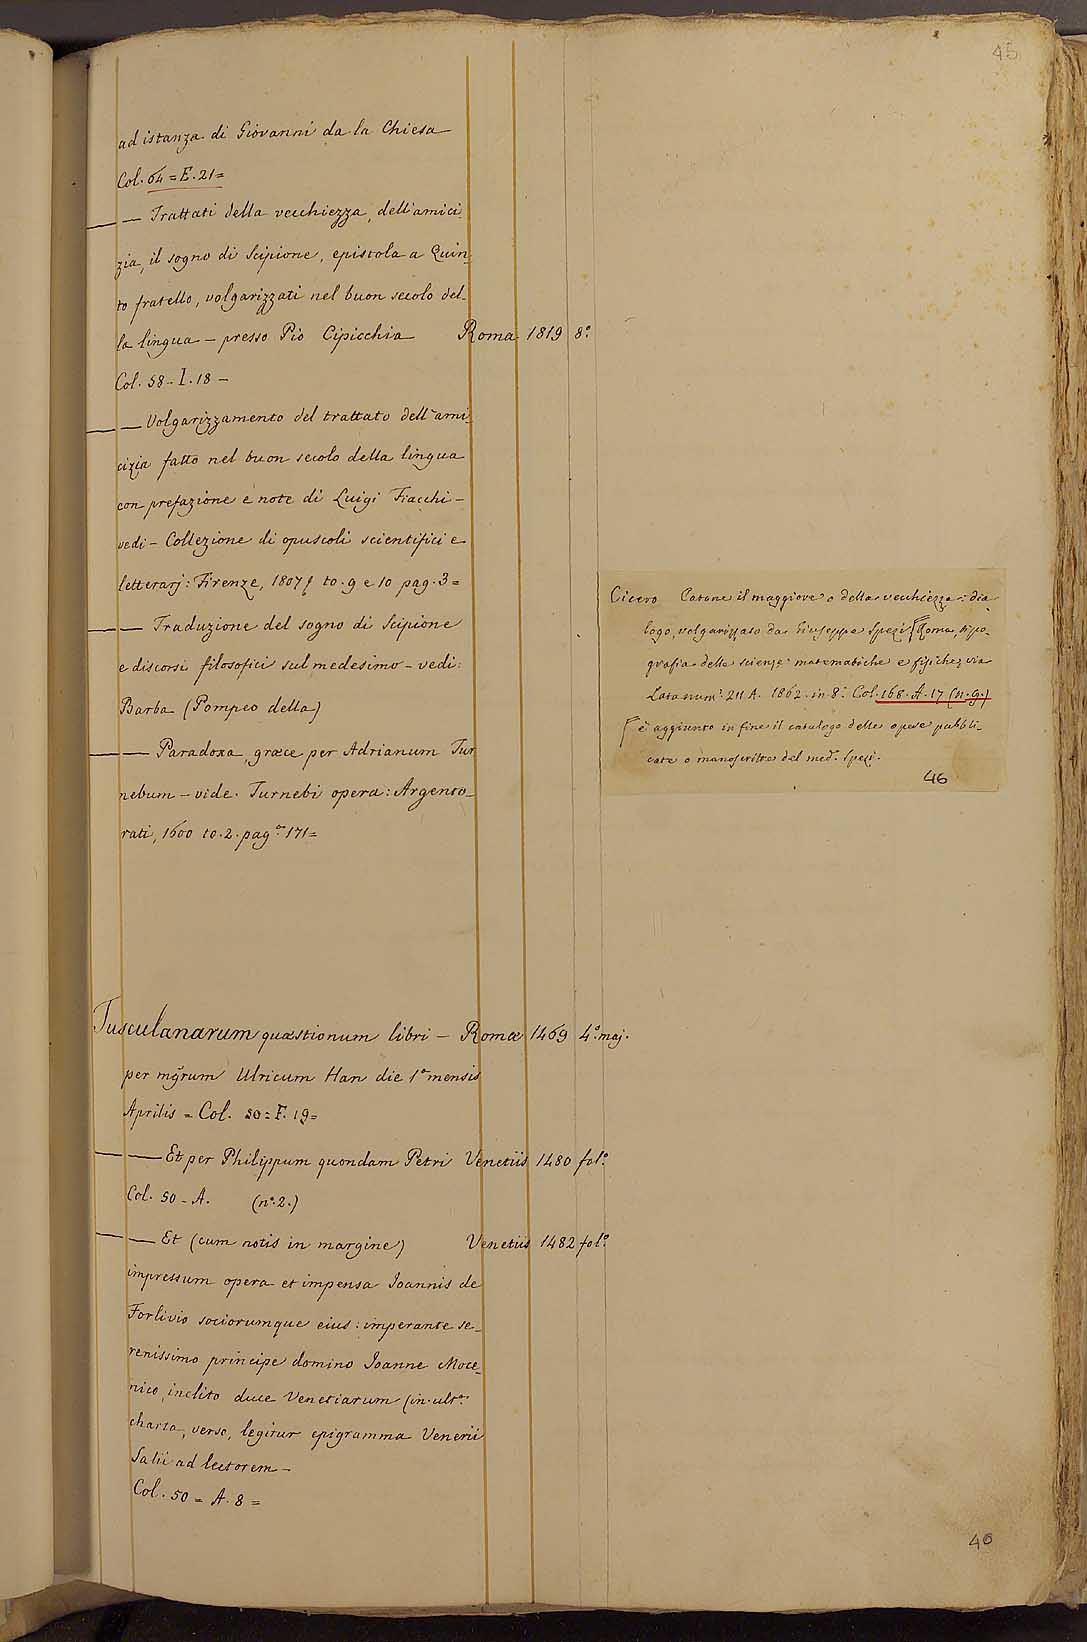 45
ad istanza di Giovanni da la Chiesa
Col. 64 = E. 21 =
— — Trattati della vecchiezza, dell'amici_
zia, il sogno di Scipione, epistola a Quin_
to fratello, volgarizzati nel buon secolo del_
la lingua — presso Pio Cipicchia Roma 1819 8.°
Col. 58 - I. 18 —
— — Volgarizzamento del trattato dell'ami_
cizia fatto nel buon secolo della lingua
con prefazione e note di Luigi Fiacchi —
vedi — Collezione di opuscoli scientifici e
letterarj: Firenze, 1807 to. 9 e 10 pag. 3 =
— — Traduzione del sogno di Scipione
e discorsi filosofici sul medesimo — vedi:
Barba (Pompeo della)
— — Paradoxa, græce per Adrianum Tur
nebum — vide. Turnebi opera: Argento_
rati, 1600 to. 2. pag. 171 =
Cicero Catone il maggiore o della vecchiezza: dia
logo, volgarizzato da Giuseppe Spezi Roma, tipo_
grafia delle scienze matematiche e fisiche, via
Lata num.° 211 A. 1862. in 8.° Col. 168. A. 17 (n. 9.)
è aggiunto in fine il catalogo delle opere pubbli_
cate o manoscritte del med.° Spezi.
46
Tusculanarum quæstionum libri — Romæ 1469 4.° maj.
per mgrum Ulricum Han die 1ª mensis
Aprilis = Col. 50 = F. 19 =
— — Et per Philippum quondam Petri Venetiis 1480 fol.°
Col. 50 - A. (n.° 2.)
— — Et (cum notis in margine) Venetiis 1482 fol.°
impressum opera et impensa Joannis de
Forlivio sociorumque eius: imperante se_
renissimo principe domino Joanne Moce_
nico, inclito duce Venetiarum (in ult.ª
charta, verso, legitur epigramma Venerii
Salii ad lectorem —
Col. 50 = A. 8 =
46